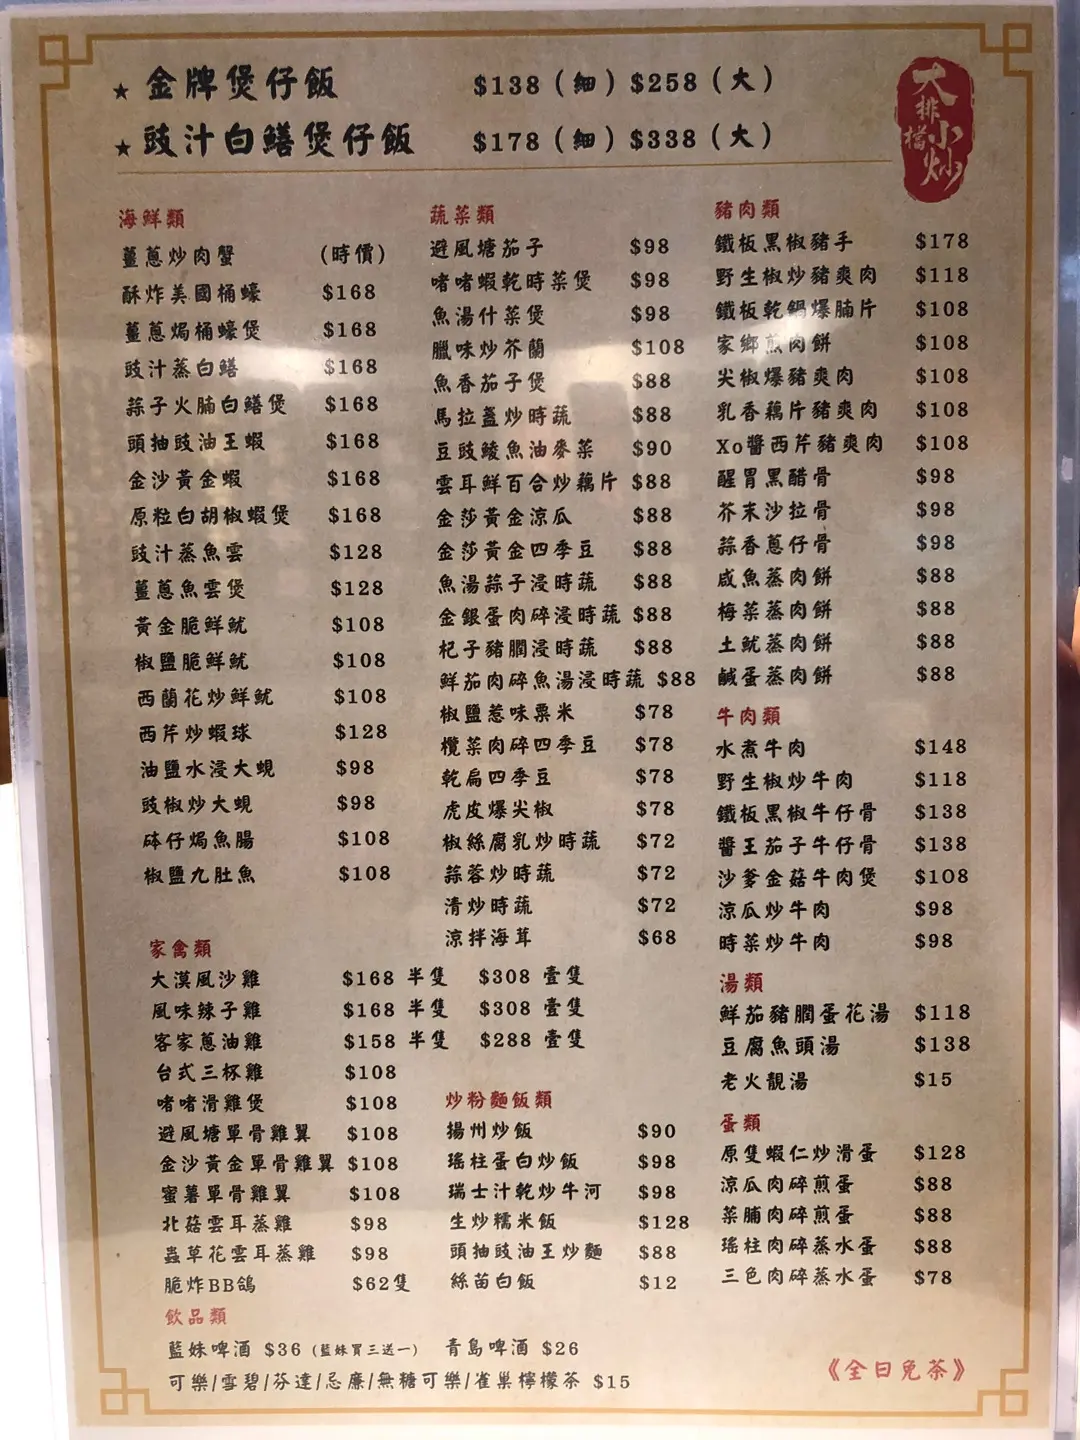 ★ 金牌煲仔飯 $138（細）$258（大）
★ 豉汁白鱔煲仔飯 $178（細）$338（大）
大排檔小炒
海鮮類
薑蔥炒肉蟹 (時價)
酥炸美國桶蠔 $168
薑蔥焗桶蠔煲 $168
豉汁蒸白鱔 $168
蒜子火腩白鱔煲 $168
頭抽豉油王蝦 $168
金沙黃金蝦 $168
原粒白胡椒蝦煲 $168
豉汁蒸魚雲 $128
薑蔥魚雲煲 $128
黃金脆鮮魷 $108
椒鹽脆鮮魷 $108
西蘭花炒鮮魷 $108
西芹炒蝦球 $128
油鹽水浸大蜆 $98
豉椒炒大蜆 $98
砵仔焗魚腸 $108
椒鹽九肚魚 $108
蔬菜類
避風塘茄子 $98
啫啫蝦乾時菜煲 $98
魚湯什菜煲 $98
臘味炒芥蘭 $108
魚香茄子煲 $88
馬拉盞炒時蔬 $88
豆豉鯪魚油麥菜 $90
雲耳鮮百合炒藕片 $88
金莎黃金涼瓜 $88
金莎黃金四季豆 $88
魚湯蒜子浸時蔬 $88
金銀蛋肉碎浸時蔬 $88
杞子豬膶浸時蔬 $88
鮮茄肉碎魚湯浸時蔬 $88
椒鹽惹味粟米 $78
欖菜肉碎四季豆 $78
乾扁四季豆 $78
虎皮爆尖椒 $78
椒絲腐乳炒時蔬 $72
蒜蓉炒時蔬 $72
清炒時蔬 $72
涼拌海茸 $68
豬肉類
鐵板黑椒豬手 $178
野生椒炒豬爽肉 $118
鐵板乾鍋爆腩片 $108
家鄉煎肉餅 $108
尖椒爆豬爽肉 $108
乳香藕片豬爽肉 $108
Xo醬西芹豬爽肉 $108
醒胃黑醋骨 $98
芥末沙拉骨 $98
蒜香蔥仔骨 $98
咸魚蒸肉餅 $88
梅菜蒸肉餅 $88
土魷蒸肉餅 $88
鹹蛋蒸肉餅 $88
牛肉類
水煮牛肉 $148
野生椒炒牛肉 $118
鐵板黑椒牛仔骨 $138
醬王茄子牛仔骨 $138
沙爹金菇牛肉煲 $108
涼瓜炒牛肉 $98
時菜炒牛肉 $98
湯類
鮮茄豬膶蛋花湯 $118
豆腐魚頭湯 $138
老火靚湯 $15
蛋類
原隻蝦仁炒滑蛋 $128
涼瓜肉碎煎蛋 $88
菜脯肉碎煎蛋 $88
瑤柱肉碎蒸水蛋 $88
三色肉碎蒸水蛋 $78
家禽類
大漠風沙雞 $168 半隻 $308 壹隻
風味辣子雞 $168 半隻 $308 壹隻
客家蔥油雞 $158 半隻 $288 壹隻
台式三杯雞 $108
啫啫滑雞煲 $108
避風塘單骨雞翼 $108
金沙黃金單骨雞翼 $108
蜜薯單骨雞翼 $108
北菇雲耳蒸雞 $98
蟲草花雲耳蒸雞 $98
脆炸BB鴿 $62隻
炒粉麵飯類
揚州炒飯 $90
瑤柱蛋白炒飯 $98
瑞士汁乾炒牛河 $98
生炒糯米飯 $128
頭抽豉油王炒麵 $88
絲苗白飯 $12
飲品類
藍妹啤酒 $36 (藍妹買三送一) 青島啤酒 $26
可樂/雪碧/芬達/忌廉/無糖可樂/雀巢檸檬茶 $15
《全日免茶》